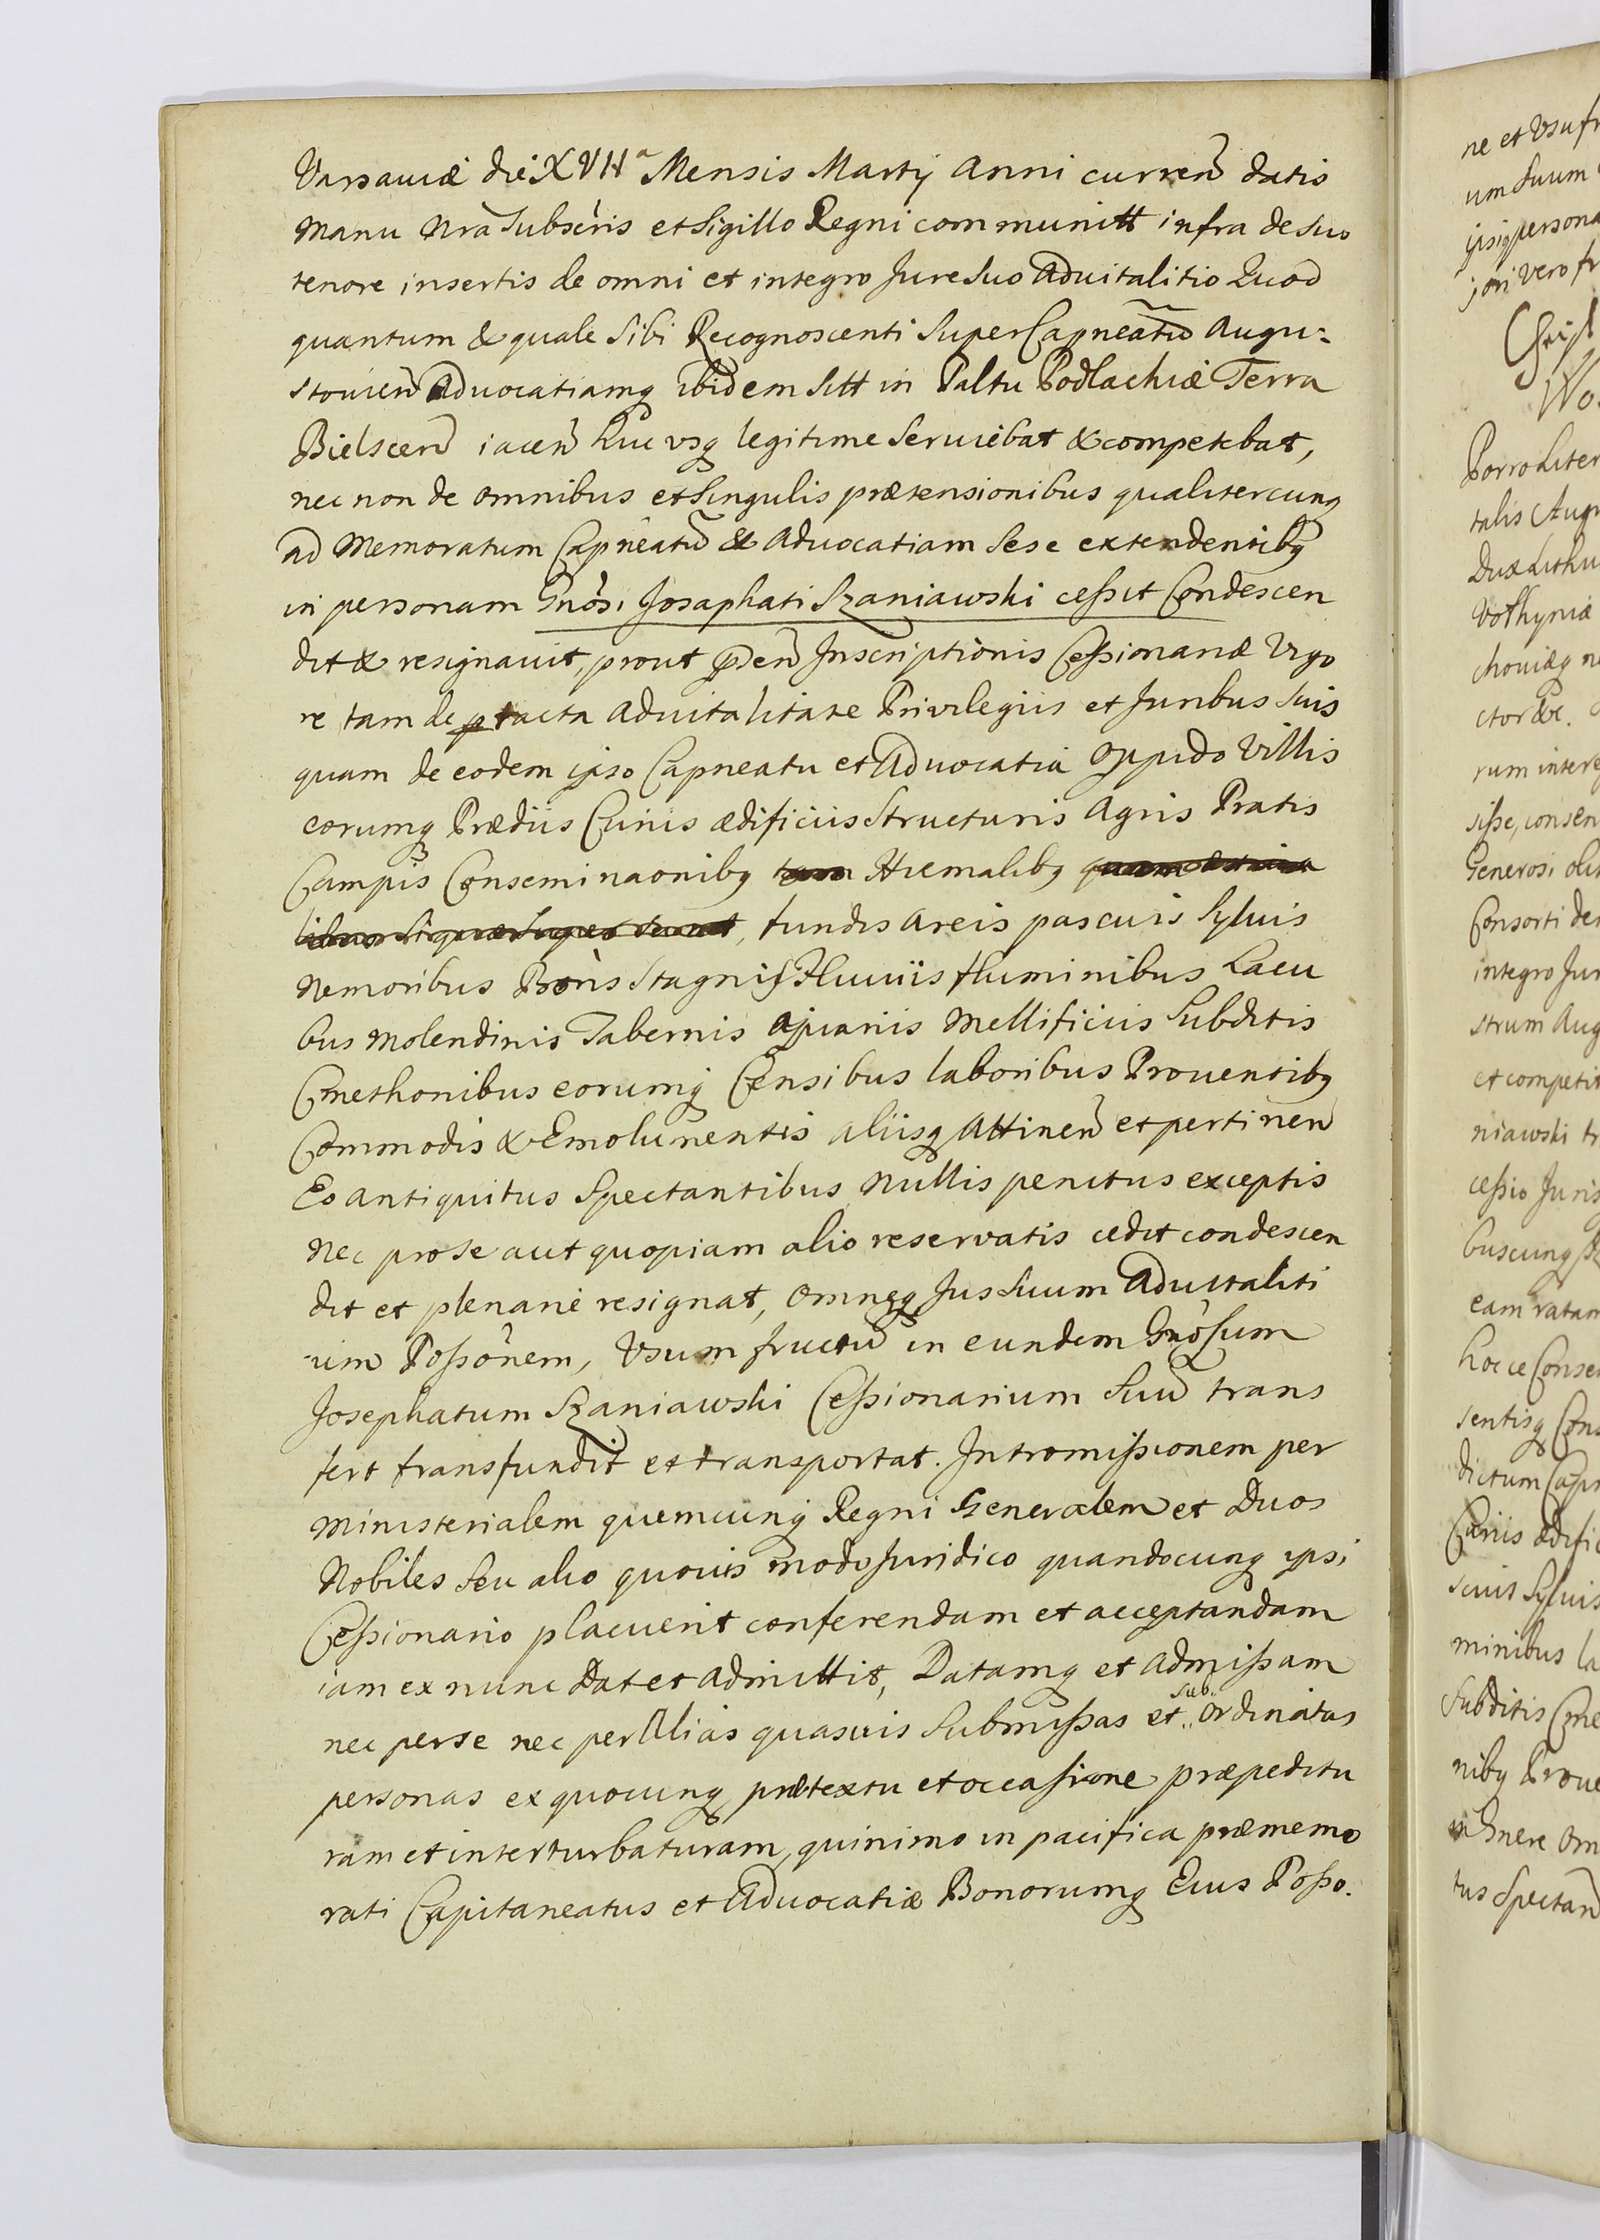 Varsaviæ die XVIIa Mensis Martij Anni curren̄ datis
Manu Nrã Subscris et Sigillo Regni communitt infra de suo
tenore insertis de omni et integro Jure Suo Aduitalitio Quod
quantum & quale Sibi Recognoscenti Super Capneatū Augu=
stouien̄ Aduocatiamq ibidem Sitt in Paltu Podlachiæ Terra
Bielscen̄ iacen̄ huc vsq legitime Seruiebat & competebat,
nec non de omnibus et Singulis prætensionibus qualitercunq
ad Memoratum Capneatū & Aduocatiam Sese extendentibq
in personam Gnosi Josaphati Szaniawski cessit Condescen
dit & resignavit, prout pden̄ Inscriptionis Cessionariæ Vigo
re tam de ptacta Aduitalitate Privilegiis et Juribus Suis
quam de eodem ipso Capneatu et Aduocatia Oppido Villis
eorumq Prædiis Curiis ædificiis Structuris Agris Pratis
Campis Conseminaonibq tam Hiemalibq quam æstiva
libus Si quæ Super sunt, fundis areis pascuis Syluis
Nemoribus Bōris Stagnis Fluuiis fluminibus Lacu
bus Molendinis Tabernis Apiariis Mellificiis Subditis
Cmethonibus eorumq Censibus laboribus Prouentibq
Commodis & Emolumentis aliisq Attinen̄ et pertinen
Eo antiquitus Spectantibus Nullis penitus exceptis
Nec pro Se aut quopiam alio reservatis cedit condescen
dit et plenarie resignat, Omneq Jus Suum Aduitaliti
um Possōnem, Vsum fructū in eundem Gnosum
Josephatum Szaniawski Cessionarium Suū trans
fert transfundit et transportat. Intromissionem per
Ministerialem quemcunq Regni Generalem et Duos
Nobiles Seu alio quovis modo Juridico quandocunq ipsi
Cessionario placuerit conferendam et acceptandam
iam ex nunc Dat et Admittit, Datamq et Admissam
nec per se nec per Alias quasuis Submissas et Sub.. ordinatas
personas ex quocunq prætextu et occasione præpeditu
ram et interturbaturam, quinimo in pacifica præmemo
rati Capitaneatus et Aduocatiæ Bonorumq Eius Posso.
ne et Vsufr
um Suum
ipsiq persona
jori vero fr
Christ
Wo
Porro Liter
talis Augu
Dux Lithu
Volhyniæ
choviæq ne
ctor &c.
rum intere
sisse, consen
Generosi oli
Consorti de
integro Jur
strum Aug
et competit
niawski tr
cessio Juris
buscunq
eam ratam
hocce Conse
sentisq Con
dictum Cap
Curiis ædific
scuis Syluis
minibus la
Subditis Cme
nibq Proue
in Gnere om
tus Spectan̄